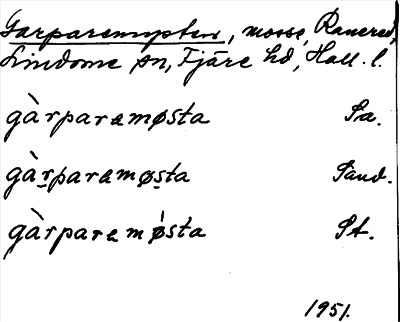 Garparemysten, mosse, Ranered,
Lindome sn, Fjäre hd, Hall. l.
gàrparamøsta Sa.
gàrparamøsta Sand.
gàrparamøsta St.
1951.